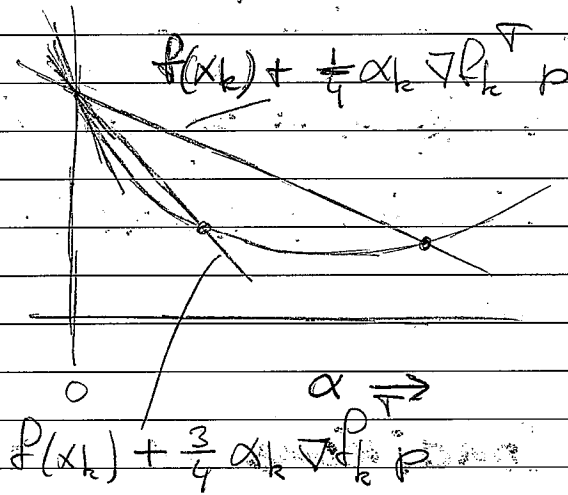 f(xₖ) + ¼ αₖ ∇fₖᵀ p
0 α →
f(xₖ) + ¾ αₖ ∇fₖᵀ p